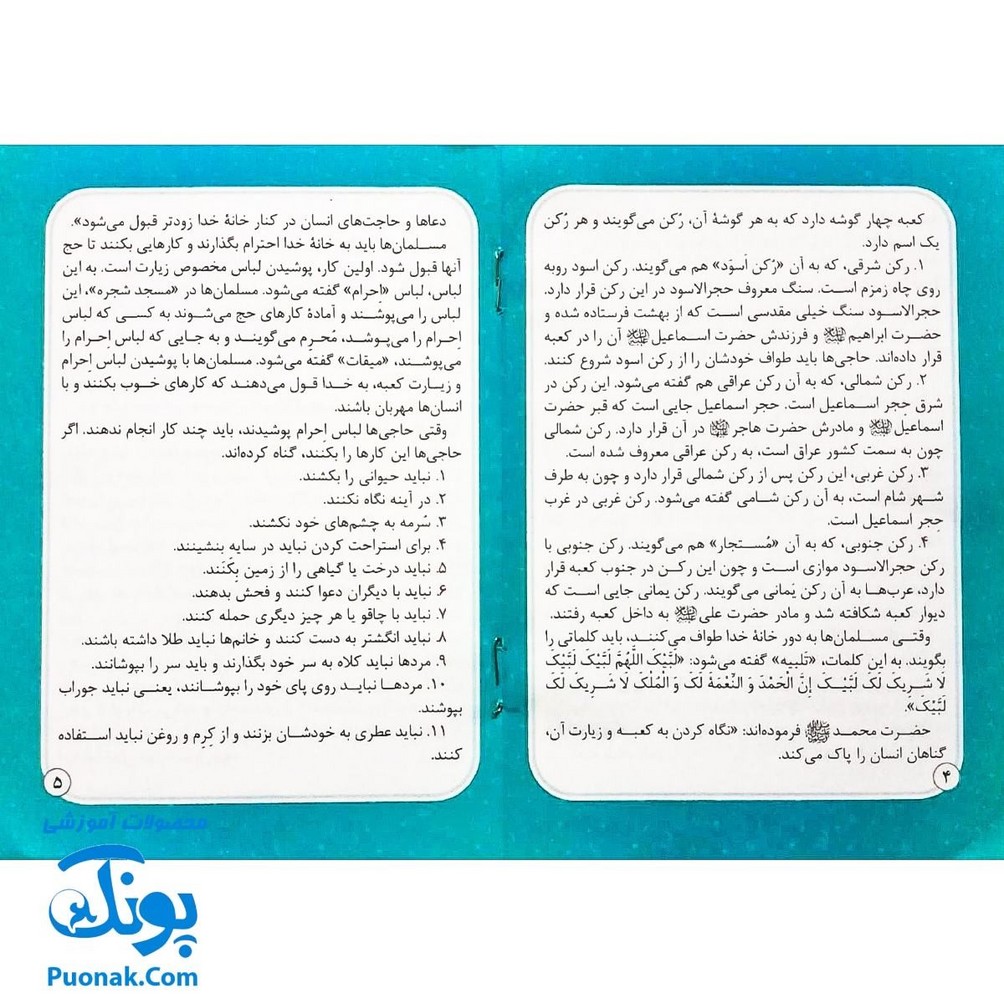 کعبه چهار گوشه دارد که به هر گوشهٔ آن، رُکن می‌گویند و هر رُکن
یک اسم دارد.
۱. رکن شرقی، که به آن «رُکن اَسوَد» هم می‌گویند. رکن اسود روبه
روی چاه زمزم است. سنگ معروف حجرالاسود در این رکن قرار دارد.
حجرالاسود سنگ خیلی مقدسی است که از بهشت فرستاده شده و
حضرت ابراهیم و فرزندش حضرت اسماعیل آن را در کعبه
قرار داده‌اند. حاجی‌ها باید طواف خودشان را از رکن اسود شروع کنند.
۲. رکن شمالی، که به آن رکن عراقی هم گفته می‌شود. این رکن در
شرق حِجر اسماعیل است. حجر اسماعیل جایی است که قبر حضرت
اسماعیل و مادرش حضرت هاجر در آن قرار دارد. رکن شمالی
چون به سمت کشور عراق است، به رکن عراقی معروف شده است.
۳. رکن غربی، این رکن پس از رکن شمالی قرار دارد و چون به طرف
شهر شام است، به آن رکن شامی گفته می‌شود. رکن غربی در غرب
حِجر اسماعیل است.
۴. رکن جنوبی، که به آن «مُستجار» هم می‌گویند. رکن جنوبی با
رکن حجرالاسود موازی است و چون این رکن در جنوب کعبه قرار
دارد، عرب‌ها به آن رکن یَمانی می‌گویند. رکن یمانی جایی است که
دیوار کعبه شکافته شد و مادر حضرت علی به داخل کعبه رفتند.
وقتی مسلمان‌ها به دور خانهٔ خدا طواف می‌کنند، باید کلماتی را
بگویند. به این کلمات، «تَلبیه» گفته می‌شود: «لَبَّیْکَ اللَّهُمَّ لَبَّیْکَ لَبَّیْکَ
لَا شَرِیکَ لَکَ لَبَّیْکَ إِنَّ الْحَمْدَ وَ النِّعْمَةَ لَکَ وَ الْمُلْکَ لَا شَرِیکَ لَکَ
لَبَّیْکَ».
حضرت محمد ﷺ فرموده‌اند: «نگاه کردن به کعبه و زیارت آن،
گناهان انسان را پاک می‌کند.
۴
دعاها و حاجت‌های انسان در کنار خانهٔ خدا زودتر قبول می‌شود».
مسلمان‌ها باید به خانهٔ خدا احترام بگذارند و کارهایی بکنند تا حج
آنها قبول شود. اولین کار، پوشیدن لباس مخصوص زیارت است. به این
لباس، لباس «اِحرام» گفته می‌شود. مسلمان‌ها در «مسجد شجره»، این
لباس را می‌پوشند و آمادهٔ کارهای حج می‌شوند به کسی که لباس
اِحرام را می‌پوشد، مُحرِم می‌گویند و به جایی که لباس اِحرام را
می‌پوشند، «میقات» گفته می‌شود. مسلمان‌ها با پوشیدن لباس اِحرام
و زیارت کعبه، به خدا قول می‌دهند که کارهای خوب بکنند و با
انسان‌ها مهربان باشند.
وقتی حاجی‌ها لباس اِحرام پوشیدند، باید چند کار انجام ندهند. اگر
حاجی‌ها این کارها را بکنند، گناه کرده‌اند.
۱. نباید حیوانی را بکشند.
۲. در آینه نگاه نکنند.
۳. سُرمه به چشم‌های خود نکشند.
۴. برای استراحت کردن نباید در سایه بنشینند.
۵. نباید درخت یا گیاهی را از زمین بِکَنَند.
۶. نباید با دیگران دعوا کنند و فحش بدهند.
۷. نباید با چاقو یا هر چیز دیگری حمله کنند.
۸. نباید انگشتر به دست کنند و خانم‌ها نباید طلا داشته باشند.
۹. مردها نباید کلاه به سر خود بگذارند و باید سر را بپوشانند.
۱۰. مردها نباید روی پای خود را بپوشانند، یعنی نباید جوراب
بپوشند.
۱۱. نباید عطری به خودشان بزنند و از کِرِم و روغن نباید استفاده
کنند.
۵
محصولات آموزشی
پونک
Puonak.Com